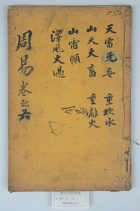 天雷无妄 重坎水
山天大畜 重離火
山雷頤
澤風大過
周易 卷之六